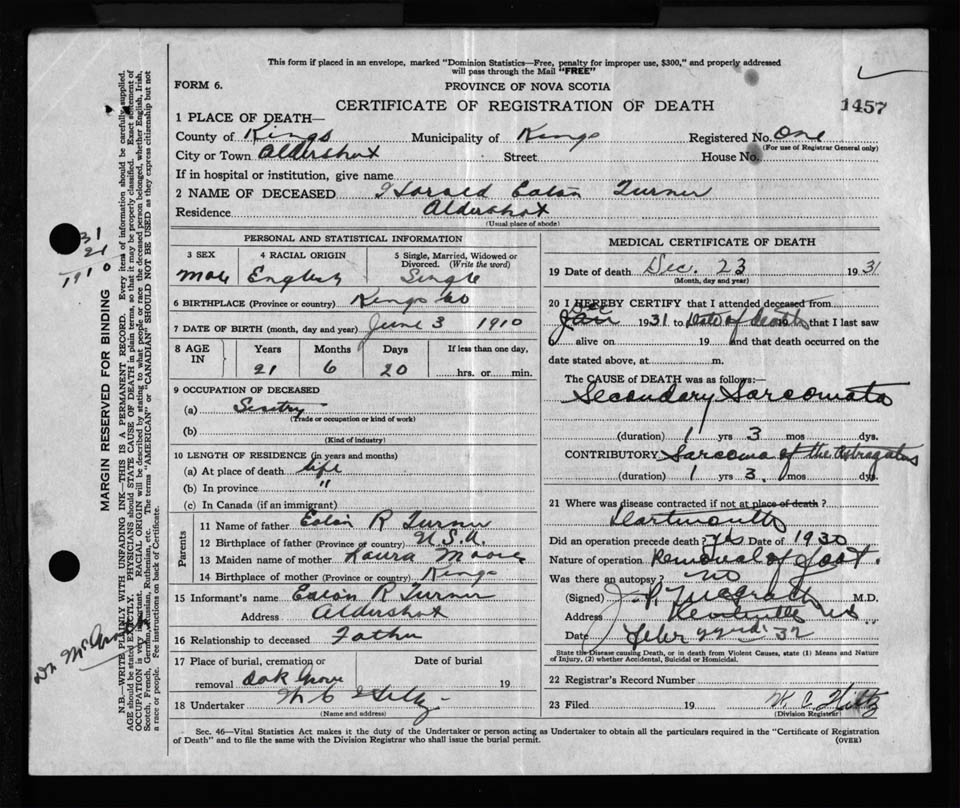 This form if placed in an envelope, marked "Dominion Statistics—Free, penalty for improper use, $300," and properly addressed
will pass through the Mail "FREE"
FORM 6.
PROVINCE OF NOVA SCOTIA
CERTIFICATE OF REGISTRATION OF DEATH
1457
1 PLACE OF DEATH—
County of Kings Municipality of Kings Registered No. One
(For use of Registrar General only)
City or Town Aldershot Street House No.
If in hospital or institution, give name
2 NAME OF DECEASED Harald Eaton Turner
Residence Aldershot
(Usual place of abode)
PERSONAL AND STATISTICAL INFORMATION
3 SEX 4 RACIAL ORIGIN 5 Single, Married, Widowed or Divorced. (Write the word)
Male English Single
6 BIRTHPLACE (Province or country) Kings Co
7 DATE OF BIRTH (month, day and year) June 3 1910
8 AGE IN Years Months Days If less than one day,
21 6 20 hrs. or min.
9 OCCUPATION OF DECEASED
(a)
(Trade or occupation or kind of work)
(b)
(Kind of industry)
10 LENGTH OF RESIDENCE (in years and months)
(a) At place of death life
(b) In province "
(c) In Canada (if an immigrant)
Parents
11 Name of father Eaton R Turner
12 Birthplace of father (Province or country) U.S.A.
13 Maiden name of mother Laura Moore
14 Birthplace of mother (Province or country) Kings
15 Informant's name Eaton R Turner
Address Aldershot
16 Relationship to deceased Father
17 Place of burial, cremation or removal Oak Grove Date of burial 19
18 Undertaker W C
(Name and address)
MEDICAL CERTIFICATE OF DEATH
19 Date of death Dec. 23 1931
(Month, day and year)
20 I HEREBY CERTIFY that I attended deceased from
Jan 1931 to Date of death 19 that I last saw
alive on 19 and that death occurred on the
date stated above, at m.
The CAUSE of DEATH was as follows:—
Secondary Sarcomata
(duration) 1 yrs 3 mos dys.
CONTRIBUTORY Sarcoma of the Astragalus
(duration) 1 yrs 3 mos dys.
21 Where was disease contracted if not at place of death?
Dartmouth
Did an operation precede death? yes Date of 1930
Nature of operation Removal of foot.
Was there an autopsy? no
(Signed) J.P. McGrath M.D.
Address Kentville NS
Date 32
State the Disease causing Death, or in death from Violent Causes, state (1) Means and Nature
of Injury, (2) whether Accidental, Suicidal or Homicidal.
22 Registrar's Record Number
23 Filed 19 W. C. Hiltz
(Division Registrar)
Sec. 46—Vital Statistics Act makes it the duty of the Undertaker or person acting as Undertaker to obtain all the particulars required in the "Certificate of Registration
of Death" and to file the same with the Division Registrar who shall issue the burial permit.
(OVER)
MARGIN RESERVED FOR BINDING
N.B.—WRITE PLAINLY WITH UNFADING INK—THIS IS A PERMANENT RECORD. Every item of information should be carefully supplied.
AGE should be stated EXACTLY. PHYSICIANS should STATE CAUSE OF DEATH in plain terms, so that it may be properly classified. Exact statement of
OCCUPATION is very important. RACIAL ORIGIN will be described by stating to what people or race the deceased person belonged, whether English, Irish,
Scotch, French, German, Russian, Ruthenian, etc. The terms "AMERICAN" or "CANADIAN" SHOULD NOT BE USED as they express citizenship but not
a race or people. Fee instructions on back of Certificate.
31
21
1910
Dr McGrath